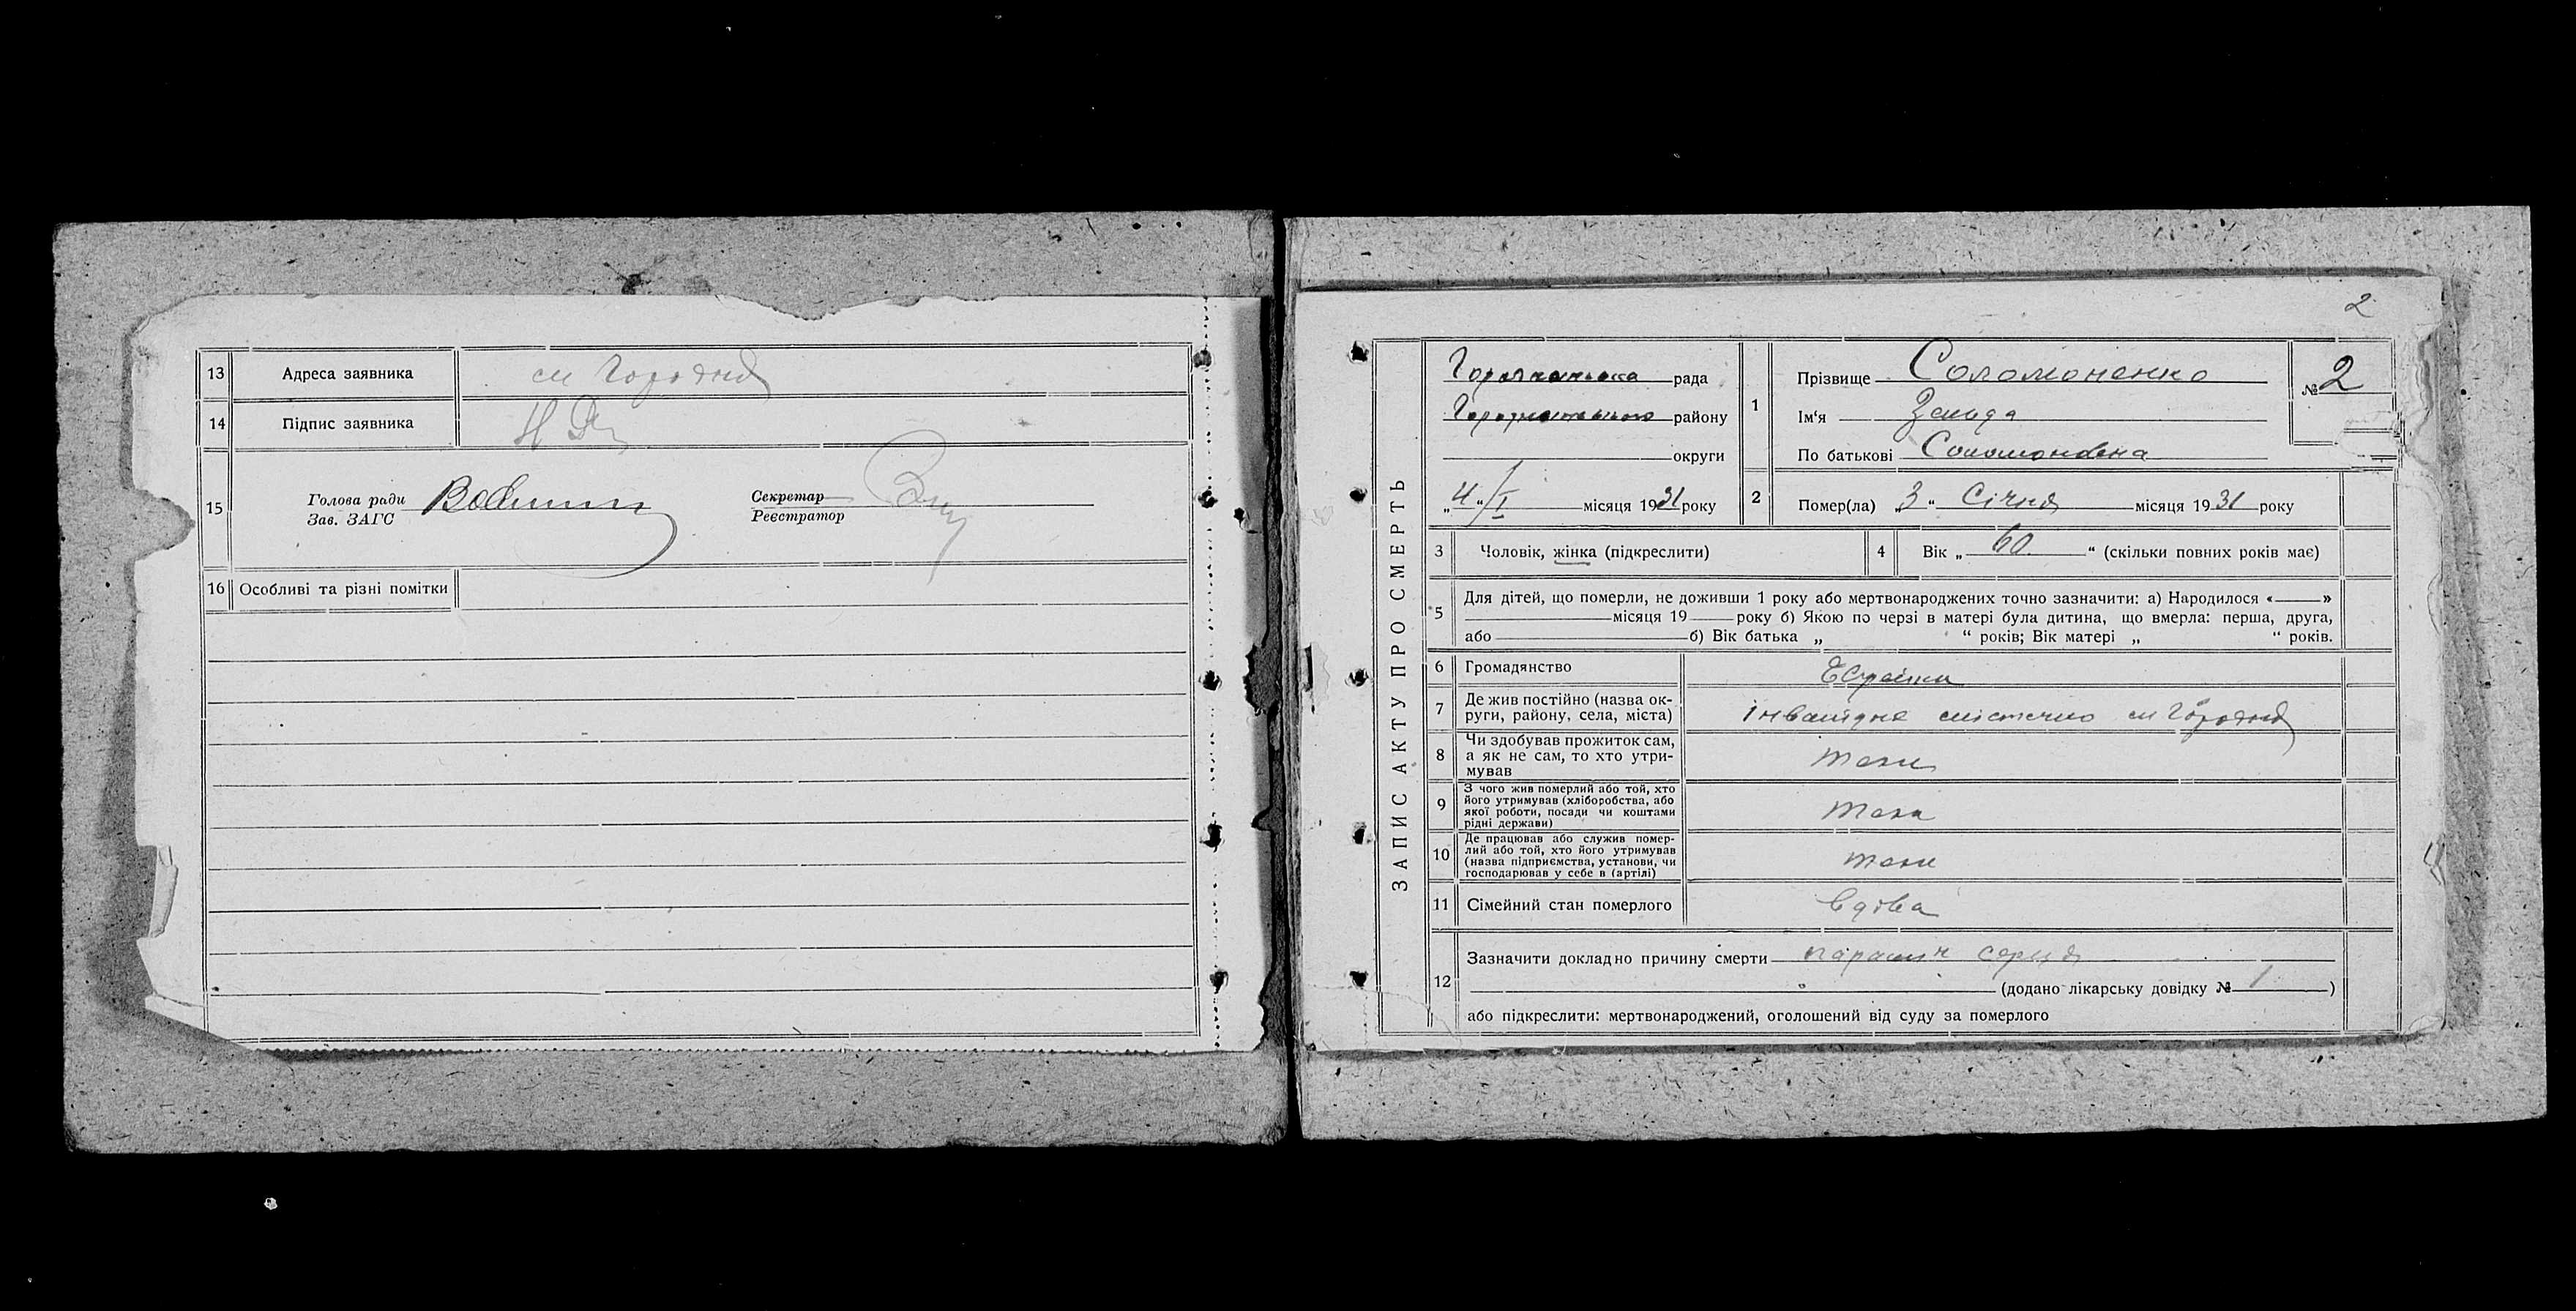 13 Адреса заявника см Городня
14 Підпис заявника
15 Голова ради
Зав. ЗАГС
Секретар
Реєстратор
16 Особливі та різні помітки
2
ЗАПИС АКТУ ПРО СМЕРТЬ
рада
району
округи
„4“/I місяця 1931 року
1 Прізвище Соломоненко
Ім'я Зельда
По батькові Соломоновна
№ 2
2 Помер(ла) „3“ Січня місяця 1931 року
3 Чоловік, жінка (підкреслити)
4 Вік „60“ (скільки повних років має)
5 Для дітей, що померли, не доживши 1 року або мертвонароджених точно зазначити: а) Народилося «——»
місяця 19 року б) Якою по черзі в матері була дитина, що вмерла: перша, друга,
або б) Вік батька „ “ років; Вік матері „ “ років.
6 Громадянство
7 Де жив постійно (назва ок-
руги, району, села, міста) містечко см Городня
8 Чи здобував прожиток сам,
а як не сам, то хто утри-
мував
9 З чого жив померлий або той, хто
його утримував (хліборобства, або
якої роботи, посади чи коштами
рідні держави)
10 Де працював або служив помер-
лий або той, хто його утримував
(назва підприємства, установи, чи
господарював у себе в (артілі)
11 Сімейний стан померлого вдова
12 Зазначити докладно причину смерти параліч серця
(додано лікарську довідку № 1)
або підкреслити: мертвонароджений, оголошений від суду за померлого